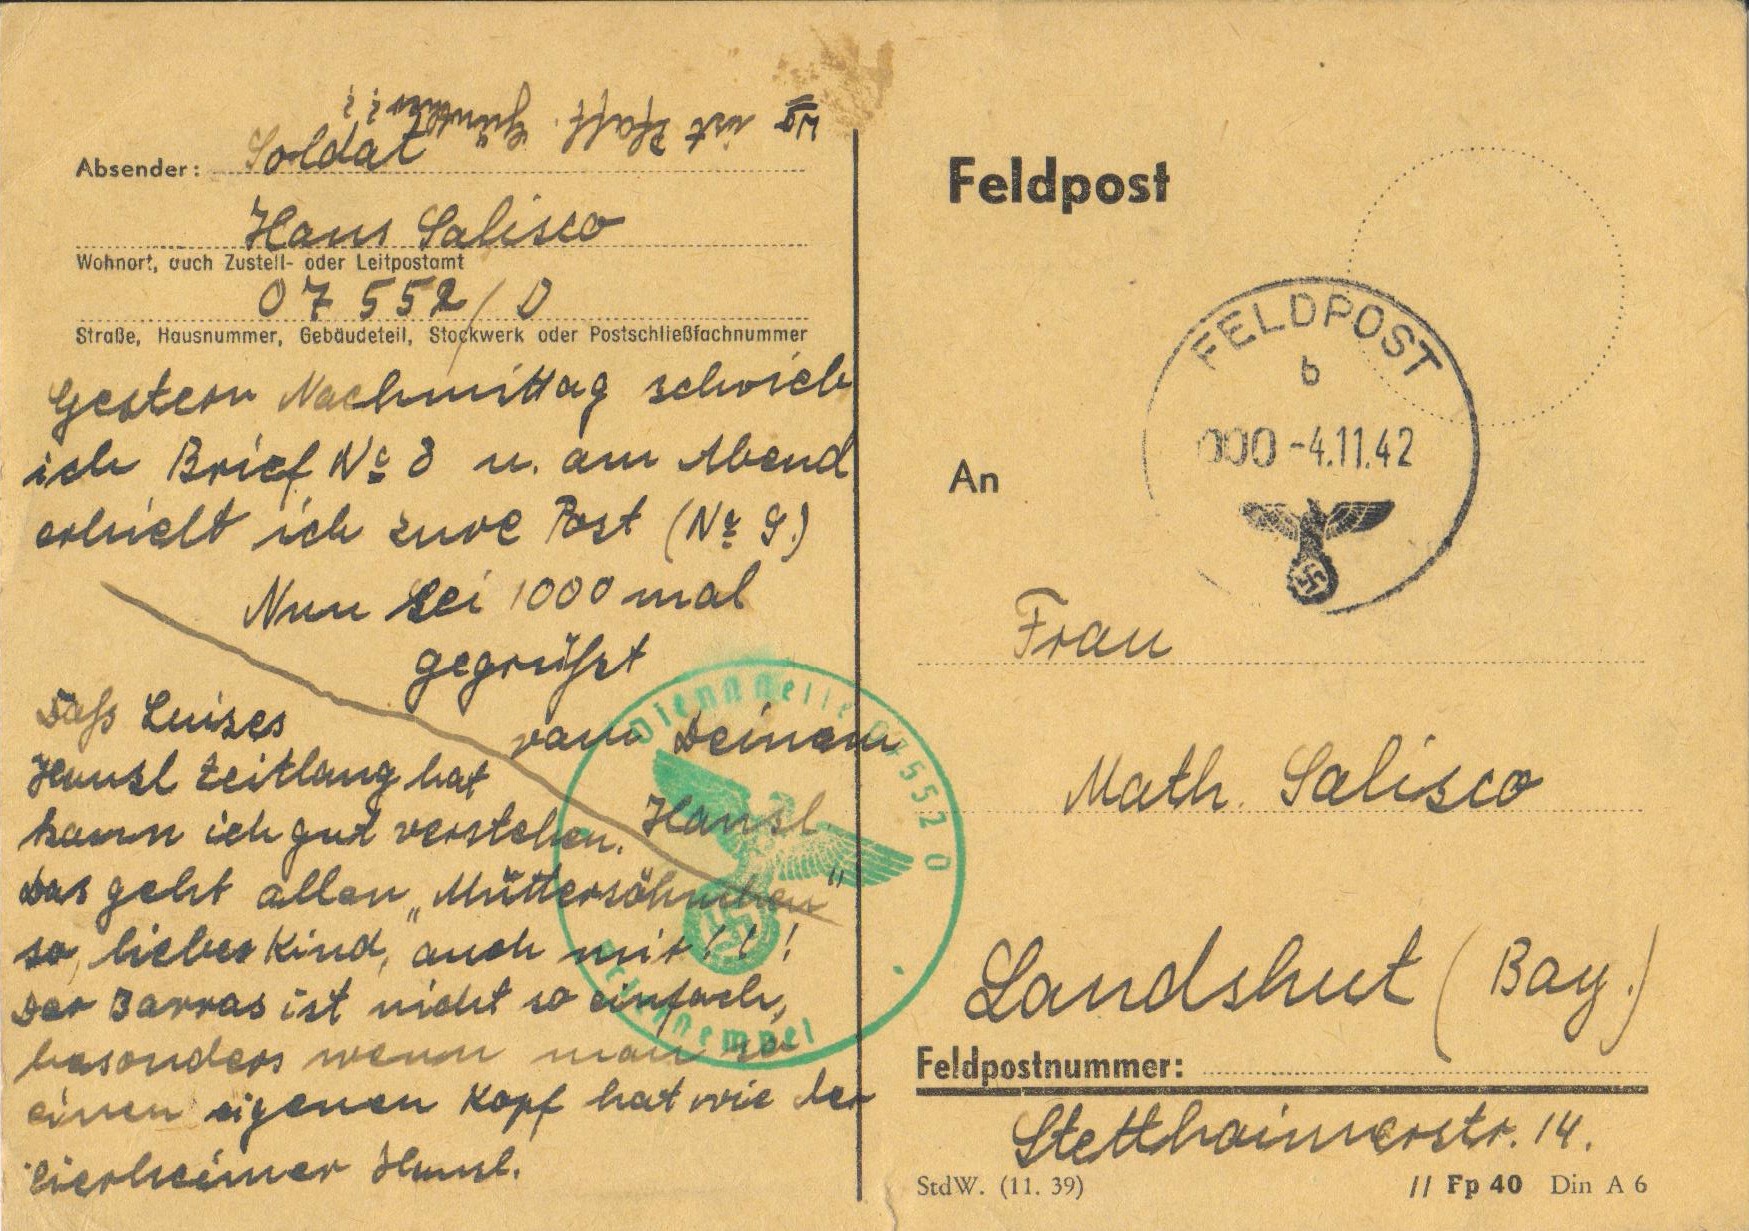 Wo ist Pfaff. Günther??
Absender: Soldat
Hans Salisco
Wohnort, auch Zustell- oder Leitpostamt
07552/D
Straße, Hausnummer, Gebäudeteil, Stockwerk oder Postschließfachnummer
Gestern Nachmittag schrieb
ich Brief No 8 u. am Abend
erhielt ich eure Post (No 9.)
Nun sei 1000 mal
gegrüßt
vom Deinem
Hansl
Daß Luises
Hansl Zeitlang hat
kann ich gut verstehen.
Das geht allen „Müttersöhnchen"
so, liebes Kind, auch mir!!!
Der Barras ist nicht so einfach,
besonders wenn man so
einen eigenen Kopf hat wie der
Hansl.
Dienststelle 07552 D
Briefstempel
Feldpost
FELDPOST
b
000 -4.11.42
An
Frau
Math. Salisco
Landshut (Bay.)
Feldpostnummer:
Stetthaimerstr. 14.
StdW. (11. 39)
// Fp 40 Din A 6